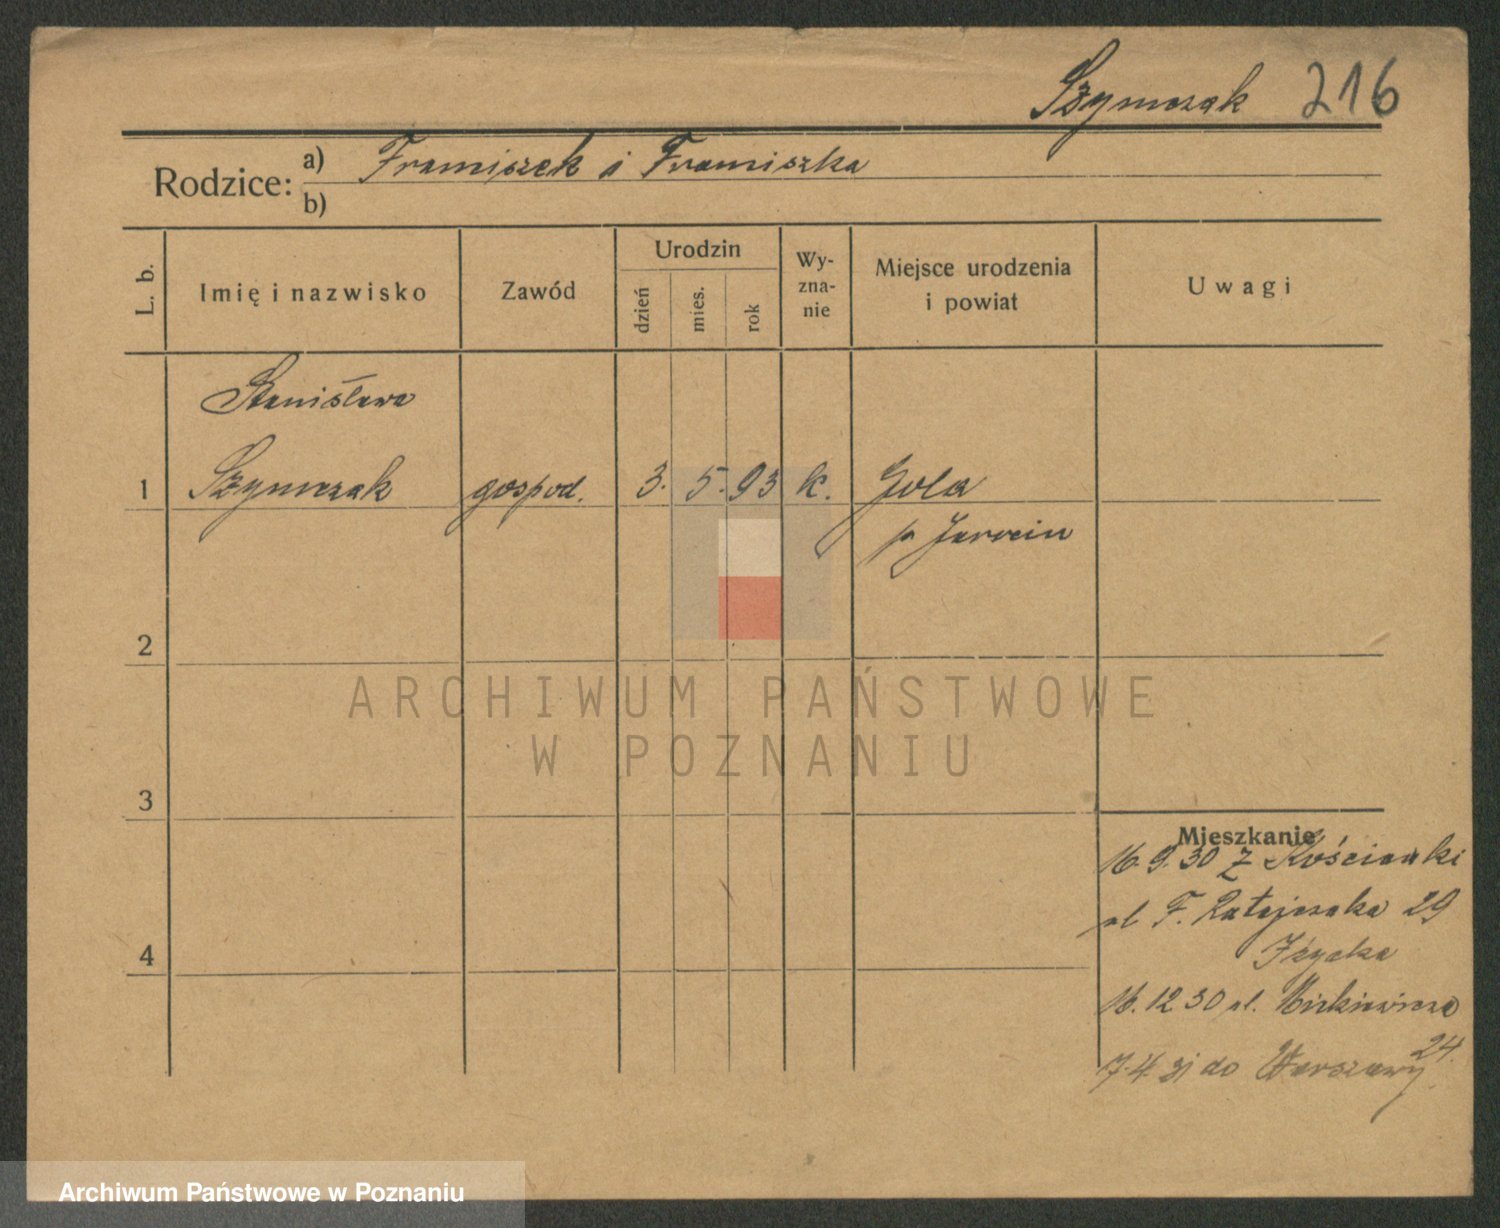 Szymczak 216
Rodzice: a) Franciszek i Franciszka
b)
L. b. Imię i nazwisko Zawód Urodzin dzień mies. rok Wyznanie Miejsce urodzenia i powiat Uwagi
Stanisława
1 Szymczak gospod. 3. 5. 93 k. Gola
p Jarocin
2
ARCHIWUM PAŃSTWOWE
W POZNANIU
3
Mieszkanie
16.9.30 z Kościanki
ul F. Ratajczaka 29
4
16.12.30 ul. Mickiewicza
24.
7.4 31 do Warszawy
Archiwum Państwowe w Poznaniu